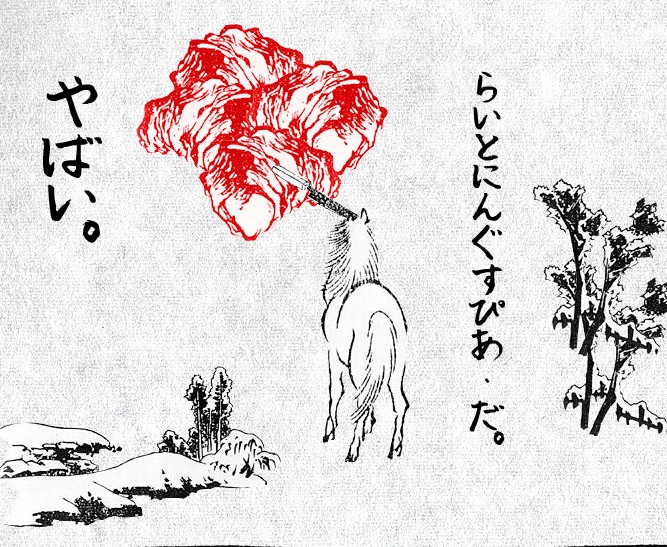 らいとにんぐすぴあ・だ。
やばい。